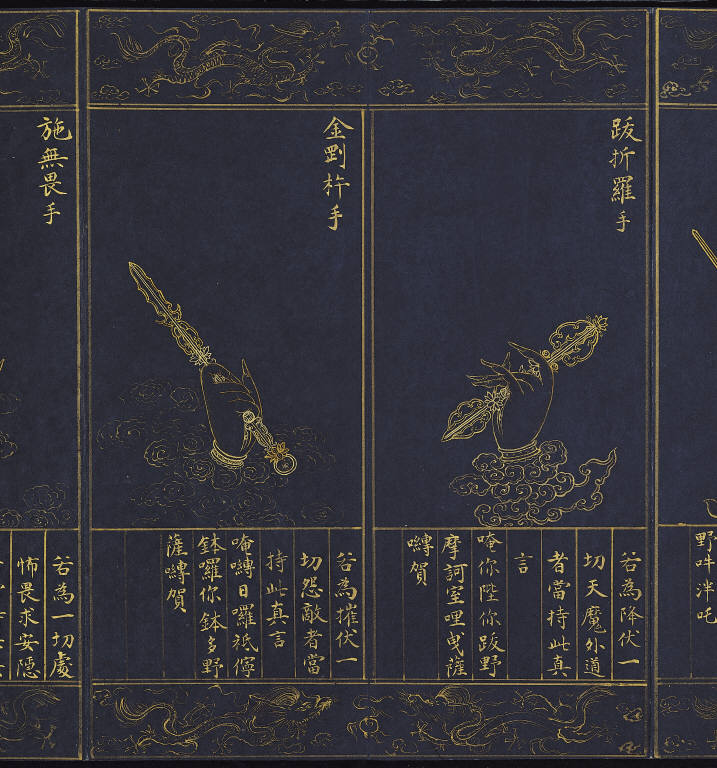 野吽泮吒
跋折羅手
若為降伏一
切天魔外道
者當持此真
言
唵你陛你跋野
摩訶室哩曳薩
嚩賀
金剛杵手
若為摧伏一
切怨敵者當
持此真言
唵嚩日囉祇儜
鉢囉你鉢多野
薩嚩賀
施無畏手
若為一切處
怖畏求安隱